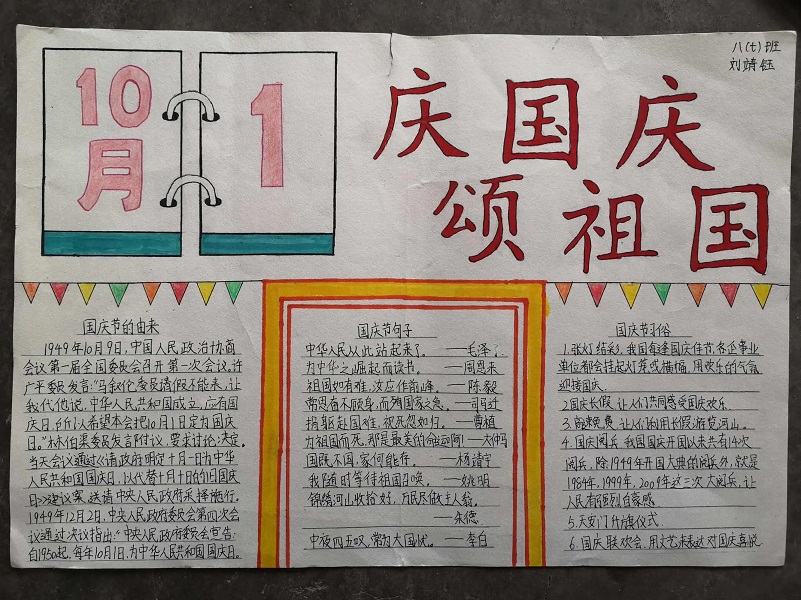 八(七)班
刘靖钰
10
月
1
庆国庆
颂祖国
国庆节的由来
1949年10月9日,中国人民政治协商
会议第一届全国委员会召开第一次会议,许
广平委员发言:"马叙伦委员请假不能来,让
我代他说,中华人民共和国成立,应有国
庆日,所以希望本会把10月1日定为国庆
日。"林伯渠委员发言附议,要求讨论,决定。
当天会议通过《请政府明定十月一日为中华
人民共和国国庆日,以代替十月十日的旧国庆
日》建议案,送请中央人民政府采择施行。
1949年12月2日,中央人民政府委员会第四次会
议通过决议指出:"中央人民政府委员会宣告:
自1950起,每年10月1日,为中华人民共和国国庆日。
国庆节句子
中华人民从此站起来了。——毛泽
为中华之崛起而读书。——周恩来
祖国如有难,汝应作前峰。——陈毅
常思奋不顾身,而殉国家之急。——司马迁
捐躯赴国难,视死忽如归。——曹植
为祖国而死,那是最美的命运阿!——大仲马
国既不国,家何能存。——杨靖宇
我随时等待祖国召唤。——姚明
锦绣河山收拾好,万民尽做主人翁。
——朱德
中夜四五叹,常为大国忧。——李白
国庆节习俗
1.张灯结彩,我国每逢国庆佳节,各企事业
单位都会挂起灯笼或横幅,用欢乐的气氛
迎接国庆.
2国庆长假,让人们共同感受国庆欢乐.
3.免费,让人们利用长假游览河山.
4.国庆阅兵,我国国庆开国以来共有14次
阅兵,除1949年开国大典的阅兵外,就是
1984年,1999年,2009年这三次大阅兵,让
人民有强烈自豪感.
5.天安门升旗仪式.
6.国庆联欢会,用文艺来表达对国庆喜悦.